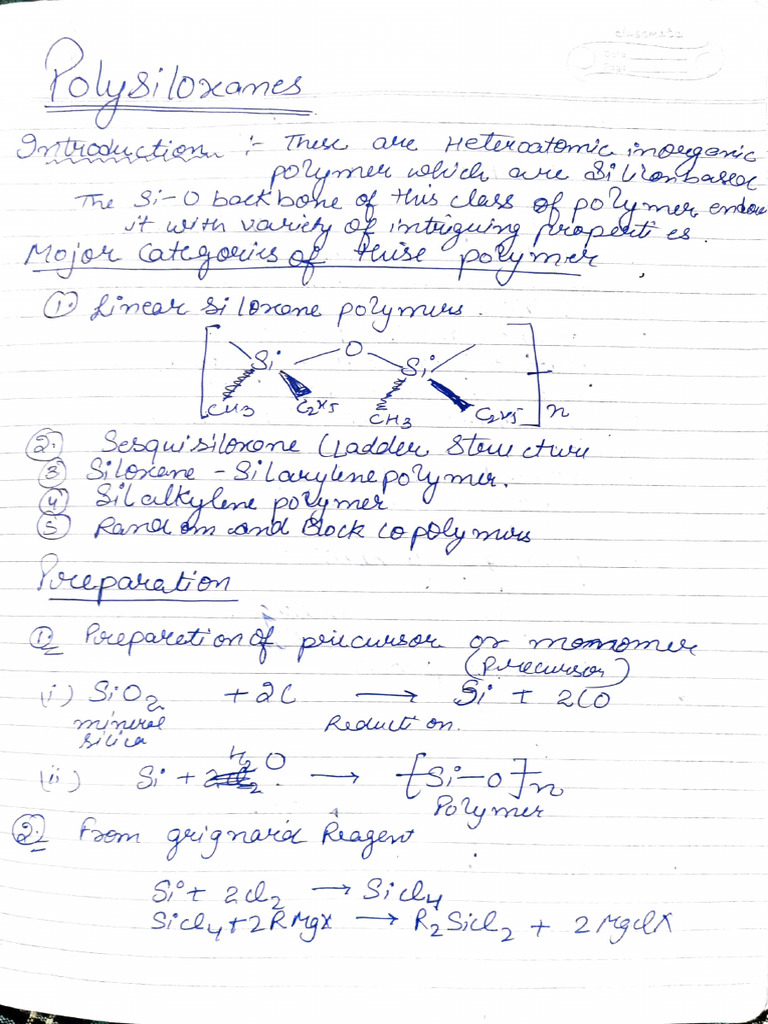 classmate
Date
Page
Polysiloxanes
Introduction :- These are Heteroatomic inorganic
polymer which are Silicon based
The Si-O backbone of this class of polymer endow
it with variety of intriguing properties.
Major Categories of these polymer
① Linear Siloxane polymers.
[ Si O Si ]n
CH3 C2H5 CH3 C2H5
② Sesquisiloxane (Ladder Structure
③ Siloxane - Silarylene polymer.
④ Silalkylene polymer
⑤ Random and Block copolymers
Preparation
① Preparation of precursor or monomer
(precursor)
(i) SiO2 + 2C → Si + 2CO
mineral silica Reduction.
(ii) Si + H2O → [Si-O]n
Polymer
② From grignard Reagent
Si + 2Cl2 → SiCl4
SiCl4 + 2RMgX → R2SiCl2 + 2MgClX